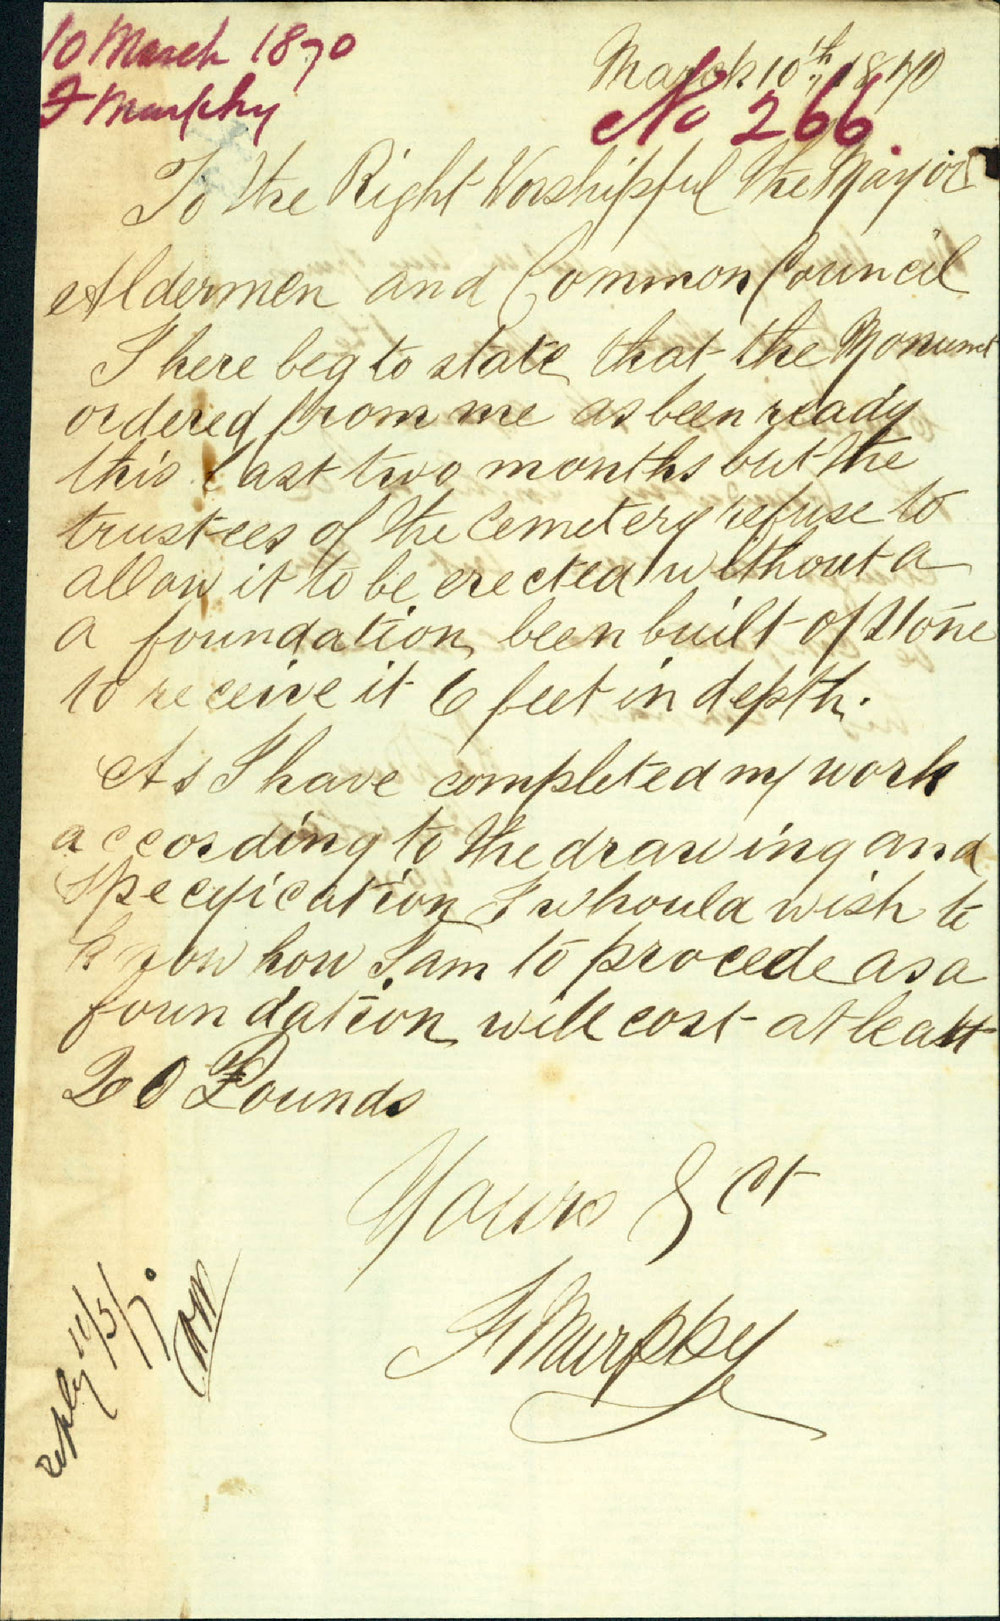 10 March 1870
F Murphy
March 10th, 1870
No 266.
To the Right Worshipful the Mayor
Aldermen and Common Council
I here beg to state that the Monumet
ordered from me as been ready
this last two months but the
trustees of the Cemetery refuse to
allow it to be erected without a
a foundation been built of Stone
to receive it 6 feet in depth.
As I have completed my work
according to the drawing and
specification I whould wish to
know how I am to procede as a
foundation will cost at least
20 Pounds
Yours &ct
F Murphy
reply 11/3/70